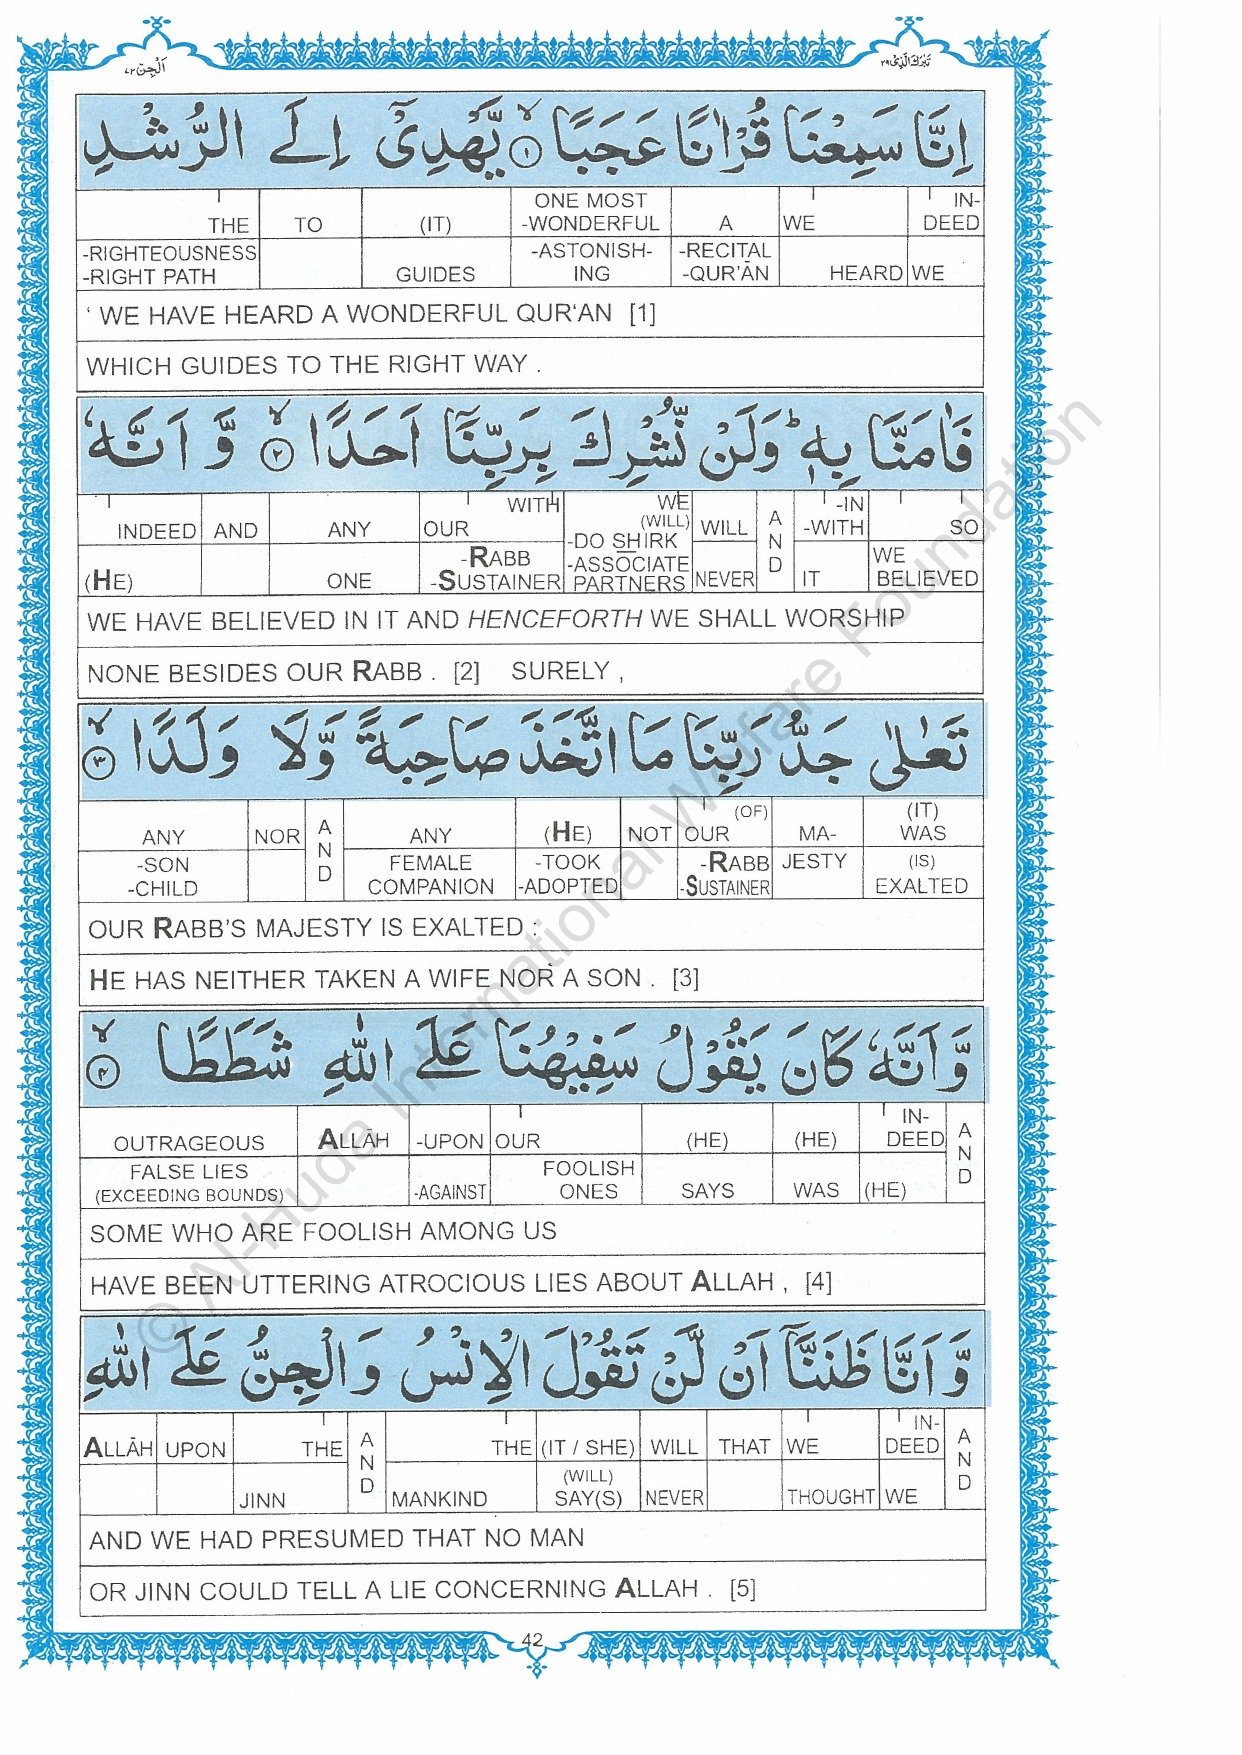 تَبٰرَكَ الَّذِیْ ٢٩
اَلْجِنّ ٧٢
اِنَّا سَمِعْنَا قُرْاٰنًا عَجَبًا ۙ١ یَّهْدِیْۤ اِلَى الرُّشْدِ
THE TO (IT) ONE MOST -WONDERFUL A WE IN-DEED
-RIGHTEOUSNESS -RIGHT PATH GUIDES -ASTONISH-ING -RECITAL -QUR'ĀN HEARD WE
‘ WE HAVE HEARD A WONDERFUL QUR‘AN [1]
WHICH GUIDES TO THE RIGHT WAY .
فَاٰمَنَّا بِهٖ ؕ وَلَنْ نُّشْرِكَ بِرَبِّنَاۤ اَحَدًا ۙ٢ وَّ اَنَّهٗ
INDEED AND ANY OUR WITH WE (WILL) WILL AND -IN -WITH SO
(HE) ONE -RABB -SUSTAINER -DO SHIRK -ASSOCIATE PARTNERS NEVER IT WE BELIEVED
WE HAVE BELIEVED IN IT AND HENCEFORTH WE SHALL WORSHIP
NONE BESIDES OUR RABB . [2] SURELY ,
تَعٰلٰى جَدُّ رَبِّنَا مَا اتَّخَذَ صَاحِبَةً وَّلَا وَلَدًا ۙ٣
ANY NOR AND ANY (HE) NOT OUR (OF) MA- (IT) WAS
-SON -CHILD FEMALE COMPANION -TOOK -ADOPTED -RABB -SUSTAINER JESTY (IS) EXALTED
OUR RABB'S MAJESTY IS EXALTED :
HE HAS NEITHER TAKEN A WIFE NOR A SON . [3]
وَّ اَنَّهٗ كَانَ یَقُوْلُ سَفِیْهُنَا عَلَى اللّٰهِ شَطَطًا ۙ٤
OUTRAGEOUS ALLĀH -UPON OUR (HE) (HE) IN-DEED AND
FALSE LIES (EXCEEDING BOUNDS) -AGAINST FOOLISH ONES SAYS WAS (HE)
SOME WHO ARE FOOLISH AMONG US
HAVE BEEN UTTERING ATROCIOUS LIES ABOUT ALLAH , [4]
وَّ اَنَّا ظَنَنَّاۤ اَنْ لَّنْ تَقُوْلَ الْاِنْسُ وَ الْجِنُّ عَلَى اللّٰهِ
ALLĀH UPON THE AND THE (IT / SHE) WILL THAT WE IN-DEED AND
JINN MANKIND (WILL) SAY(S) NEVER THOUGHT WE
AND WE HAD PRESUMED THAT NO MAN
OR JINN COULD TELL A LIE CONCERNING ALLAH . [5]
42
© Al-Huda International Welfare Foundation